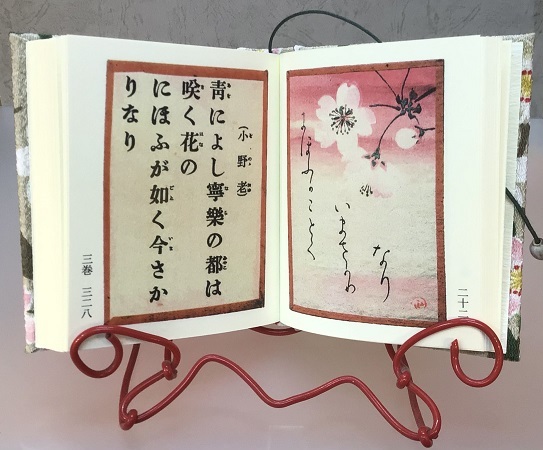 にほふかことく
いまさかり
なり
(小野老)
靑によし寧樂の都は
咲く花の
にほふが如く今さか
りなり
三巻 三二八